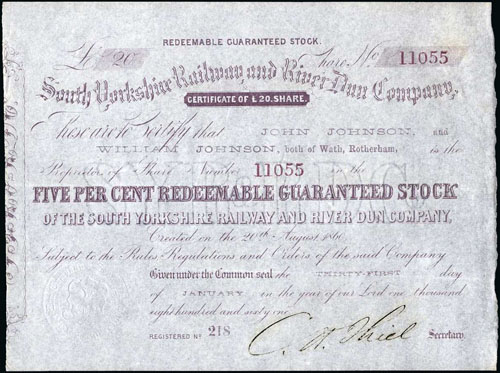 REDEEMABLE GUARANTEED STOCK.
£ 20 Share No 11055
South Yorkshire Railway and River Dun Company,
CERTIFICATE OF £20. SHARE.
These are to Certify that JOHN JOHNSON, and
WILLIAM JOHNSON, both of Wath, Rotherham, is the
Proprietor of Share Number 11055 in the
FIVE PER CENT REDEEMABLE GUARANTEED STOCK
OF THE SOUTH YORKSHIRE RAILWAY AND RIVER DUN COMPANY,
Created on the 20th August 1860
Subject to the Rules Regulations and Orders of the said Company
Given under the Common seal the THIRTY-FIRST day
of JANUARY in the year of our Lord one thousand
eight hundred and sixty one
REGISTERED No 218 Secretary.